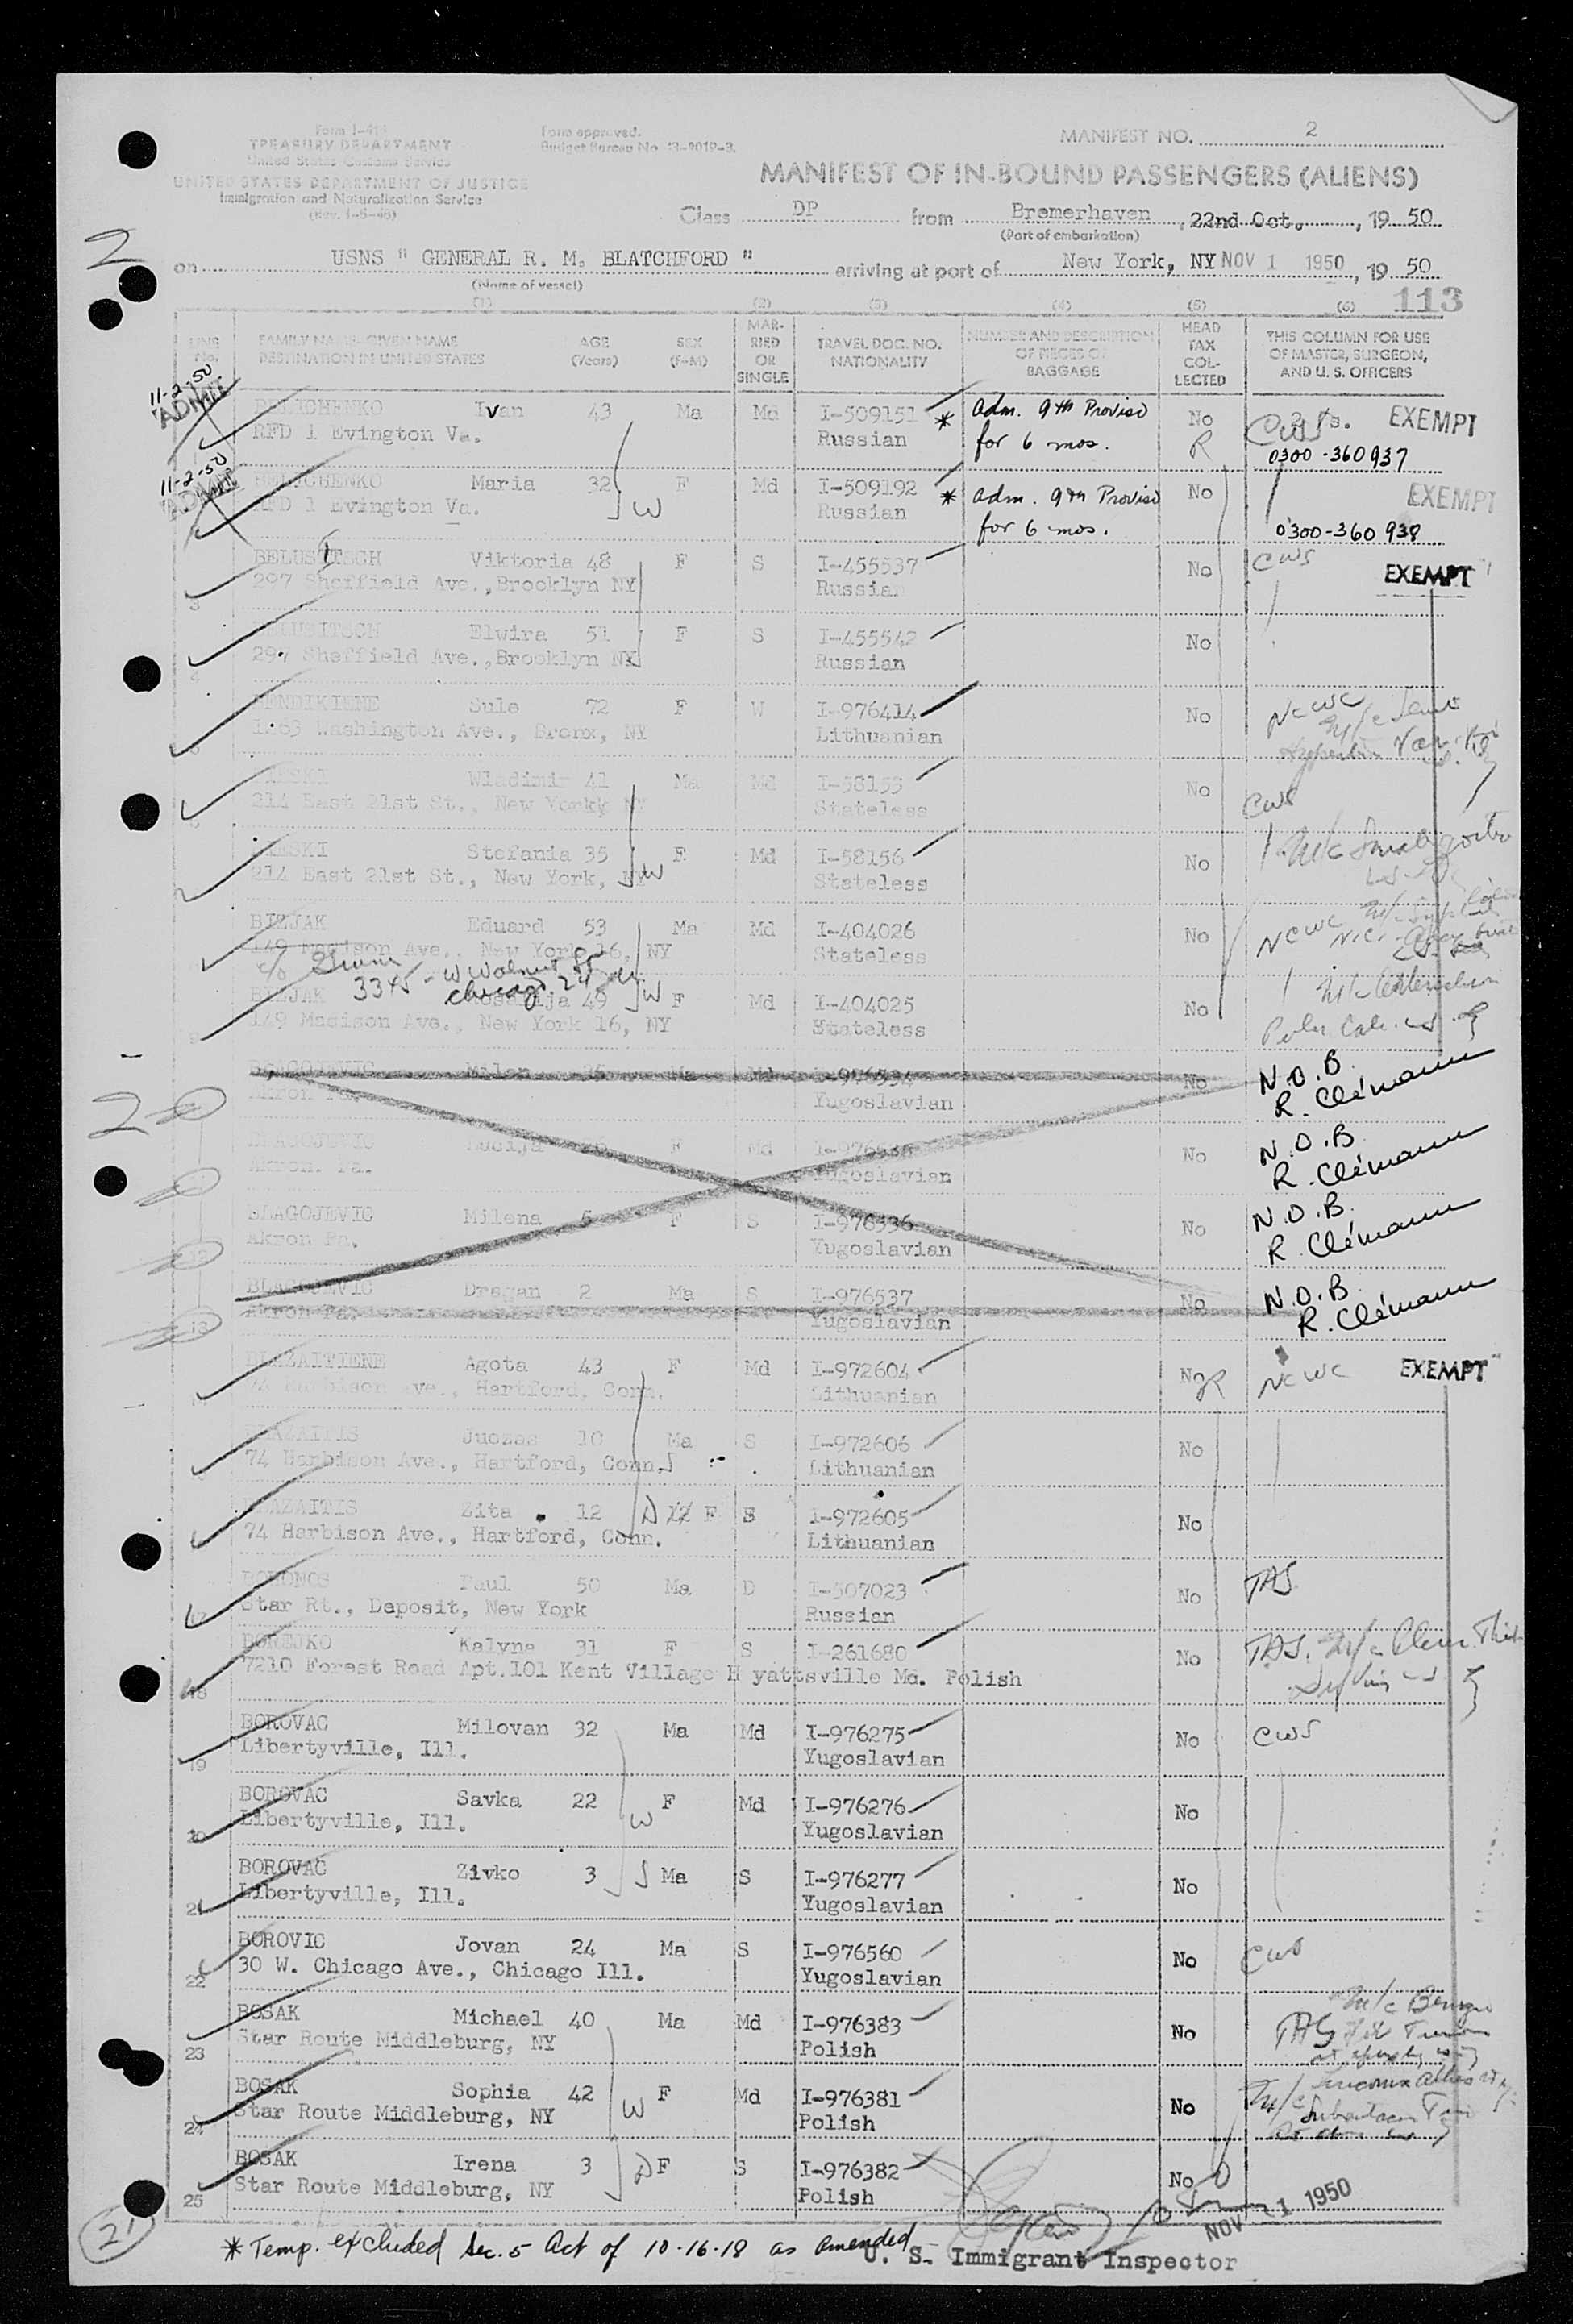 Form I-41
TREASURY DEPARTMENT
United States Customs Service
UNITED STATES DEPARTMENT OF JUSTICE
Immigration and Naturalization Service
Form approved.
Budget Bureau No.
MANIFEST NO. 2
MANIFEST OF IN-BOUND PASSENGERS (ALIENS)
Class DP from Bremerhaven, 22nd Oct., 19 50
(Port of embarkation)
2
on USNS " GENERAL R. M. BLATCHFORD " arriving at port of New York, NY NOV 1 1950, 19 50
(Name of vessel)
113
(1) (2) (3) (4) (5) (6)
LINE No.
FAMILY NAME—GIVEN NAME AGE SEX
DESTINATION IN UNITED STATES (Years) (F-M)
MARRIED OR SINGLE
TRAVEL DOC. NO. NATIONALITY
NUMBER AND DESCRIPTION OF PIECES OF BAGGAGE
HEAD TAX COLLECTED
THIS COLUMN FOR USE OF MASTER, SURGEON, AND U. S. OFFICERS
11-2-50 ADMIT
BELICHENKO Ivan 43 Ma Md I-509151 * Adm. 9th Proviso No CWS EXEMPT
RFD 1 Evington Va. Russian for 6 mos. R 0300-360937
11-2-50 ADMIT
BELICHENKO Maria 32 F Md I-509192 * Adm. 9th Proviso No EXEMPT
RFD 1 Evington Va. W Russian for 6 mos. 0300-360938
Viktoria 48 F S I-455537 No CWS EXEMPT
3 297 Sheffield Ave., Brooklyn NY Russian
BELUSITSCH Elwira 51 F S I-455542 No
4 297 Sheffield Ave., Brooklyn NY Russian
BENDIKIENE Sule 72 F W I-976414 No NCWC
Washington Ave., Bronx, NY Lithuanian
Wladimir 41 Ma Md I-58155 No CWS
214 East 21st St., New York NY Stateless
Stefania 35 F Md I-58156 No
214 East 21st St., New York, NY W Stateless
BIZJAK Eduard 53 Ma Md I-404026 No NCWC
149 Madison Ave., New York 16, NY Stateless
3345 - W Walnut St
Chicago 24
BIZJAK 49 W F Md I-404025 No
149 Madison Ave., New York 16, NY Stateless
BLAGOJEVIC Milan Ma Md No N.O.B.
Akron Pa. Yugoslavian R. Clémann
BLAGOJEVIC F Md No N.O.B.
Akron. Pa. Yugoslavian R. Clémann
BLAGOJEVIC Milena 5 F S I-976536 No N.O.B.
12 Akron Pa. Yugoslavian R. Clémann
BLAGOJEVIC Dragan 2 Ma S I-976537 No N.O.B.
13 Akron Pa. Yugoslavian R. Clémann
BLAZAITIENE Agota 43 F Md I-972604 No R NCWC EXEMPT
74 Harbison Ave., Hartford, Conn. Lithuanian
BLAZAITIS Juozas 10 Ma S I-972606 No
74 Harbison Ave., Hartford, Conn. S Lithuanian
BLAZAITIS Zita 12 D F S I-972605 No
74 Harbison Ave., Hartford, Conn. Lithuanian
Paul 50 Ma D I-507023 No TAS
17 Star Rt., Deposit, New York Russian
BOREJKO Kalyna 31 F S I-261680 No TAS.
18 7210 Forest Road Apt.101 Kent Village H yattsville Md. Polish
BOROVAC Milovan 32 Ma Md I-976275 No CWS
19 Libertyville, Ill. Yugoslavian
BOROVAC Savka 22 F Md I-976276 No
20 Libertyville, Ill. W Yugoslavian
BOROVAC Zivko 3 S Ma S I-976277 No
21 Libertyville, Ill. Yugoslavian
BOROVIC Jovan 24 Ma S I-976560 No CWS
22 30 W. Chicago Ave., Chicago Ill. Yugoslavian
BOSAK Michael 40 Ma Md I-976383 No TAS
23 Star Route Middleburg, NY Polish
BOSAK Sophia 42 F Md I-976381 No
24 Star Route Middleburg, NY W Polish
BOSAK Irena 3 D F S I-976382 No
25 Star Route Middleburg, NY Polish
NOV 1 1950
21
* Temp. excluded Sec. 5 Act of 10-16-18 as amended
U. S. Immigrant Inspector